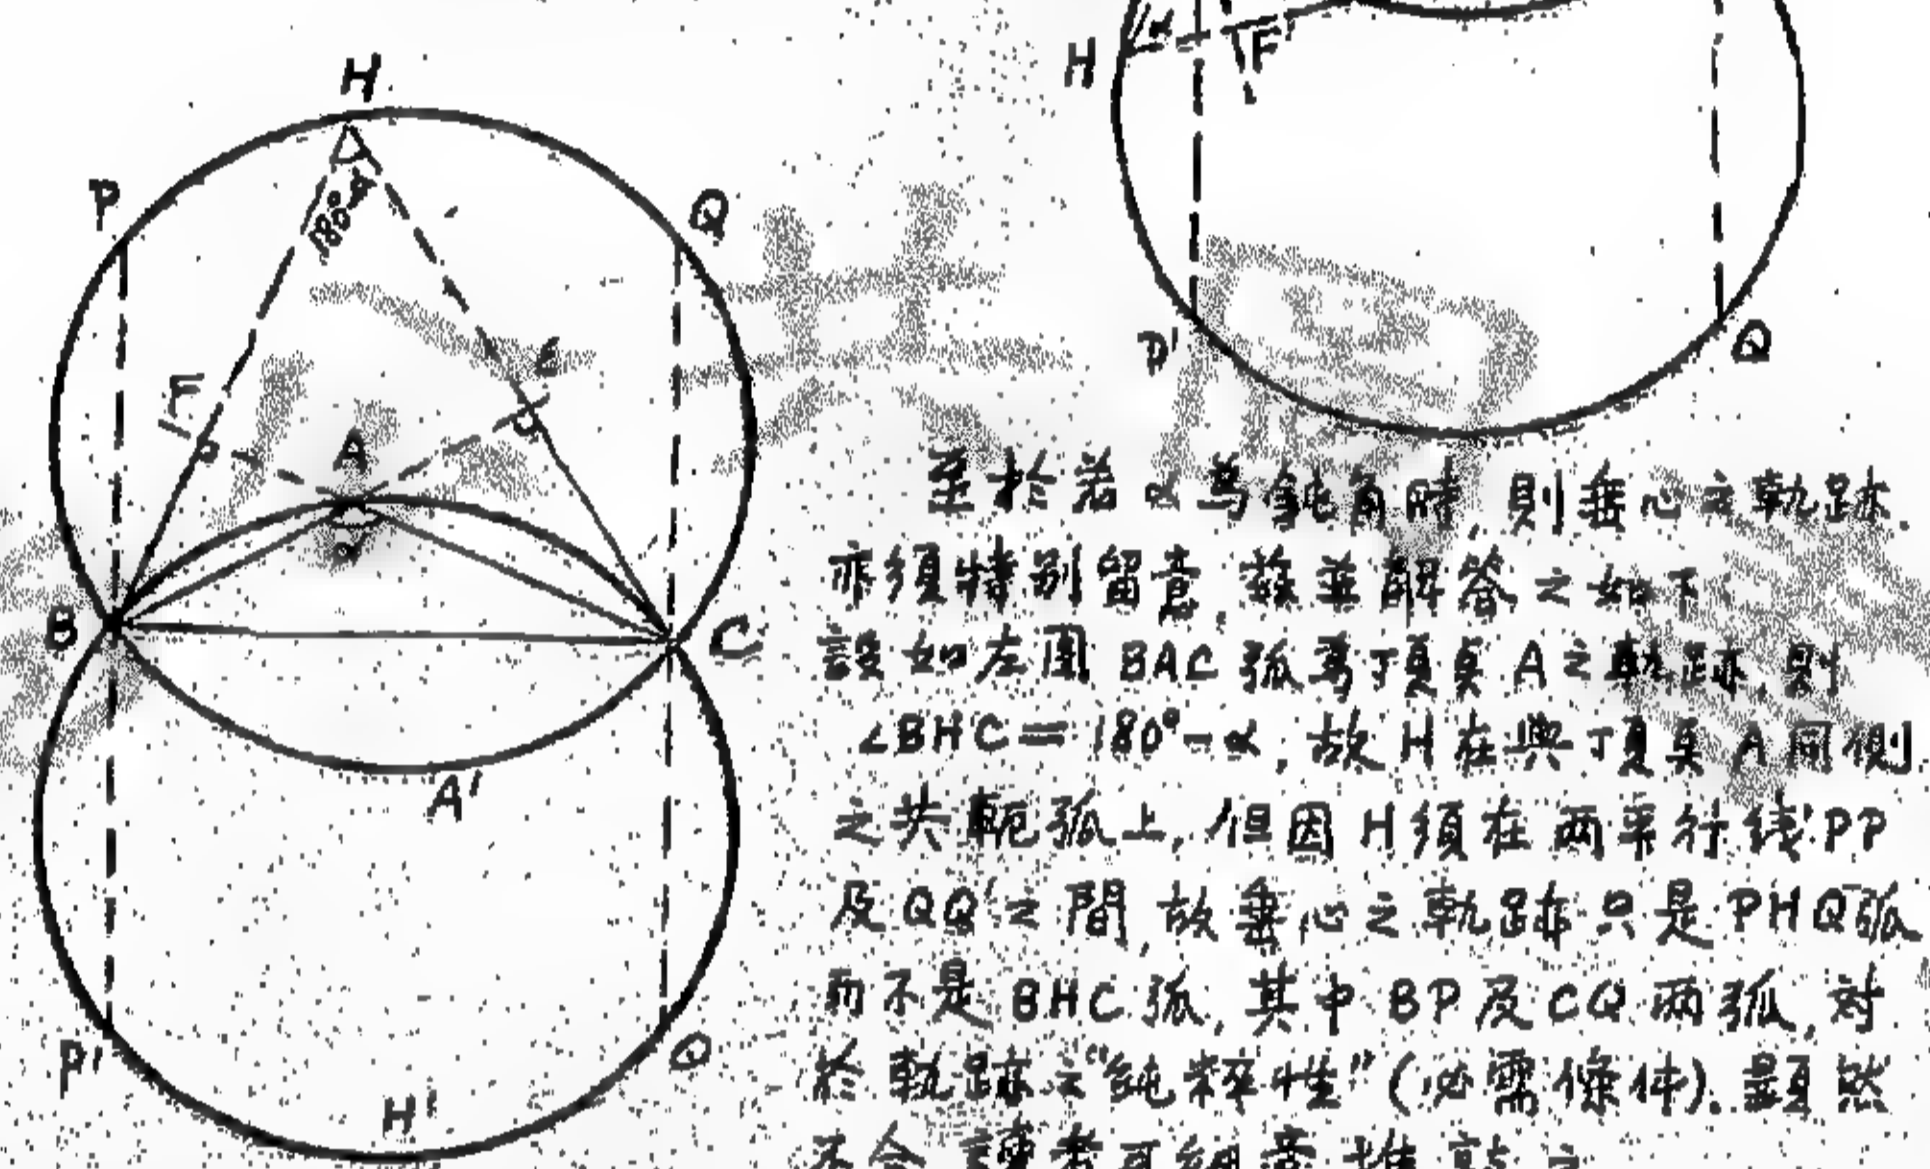 H
α
F
H
P
Q
180°-α
E
F
A
α
B
C
P'
Q
A'
P'
Q
H'
至於若 α 為鈍角時, 則垂心之軌跡.
亦須特別留意, 茲並解答之如下:
設如左圖 BAC 弧為頂点 A 之軌跡, 則
∠BHC = 180°-α, 故 H 在與頂点 A 同側
之共軛弧上, 但因 H 須在兩平行线 PP'
及 QQ' 之間, 故垂心之軌跡只是 PHQ 弧
而不是 BHC 弧, 其中 BP 及 CQ 两弧, 对
於軌跡之"純粹性" (必需條件). 显然
不合, 讀者可細意推敲之